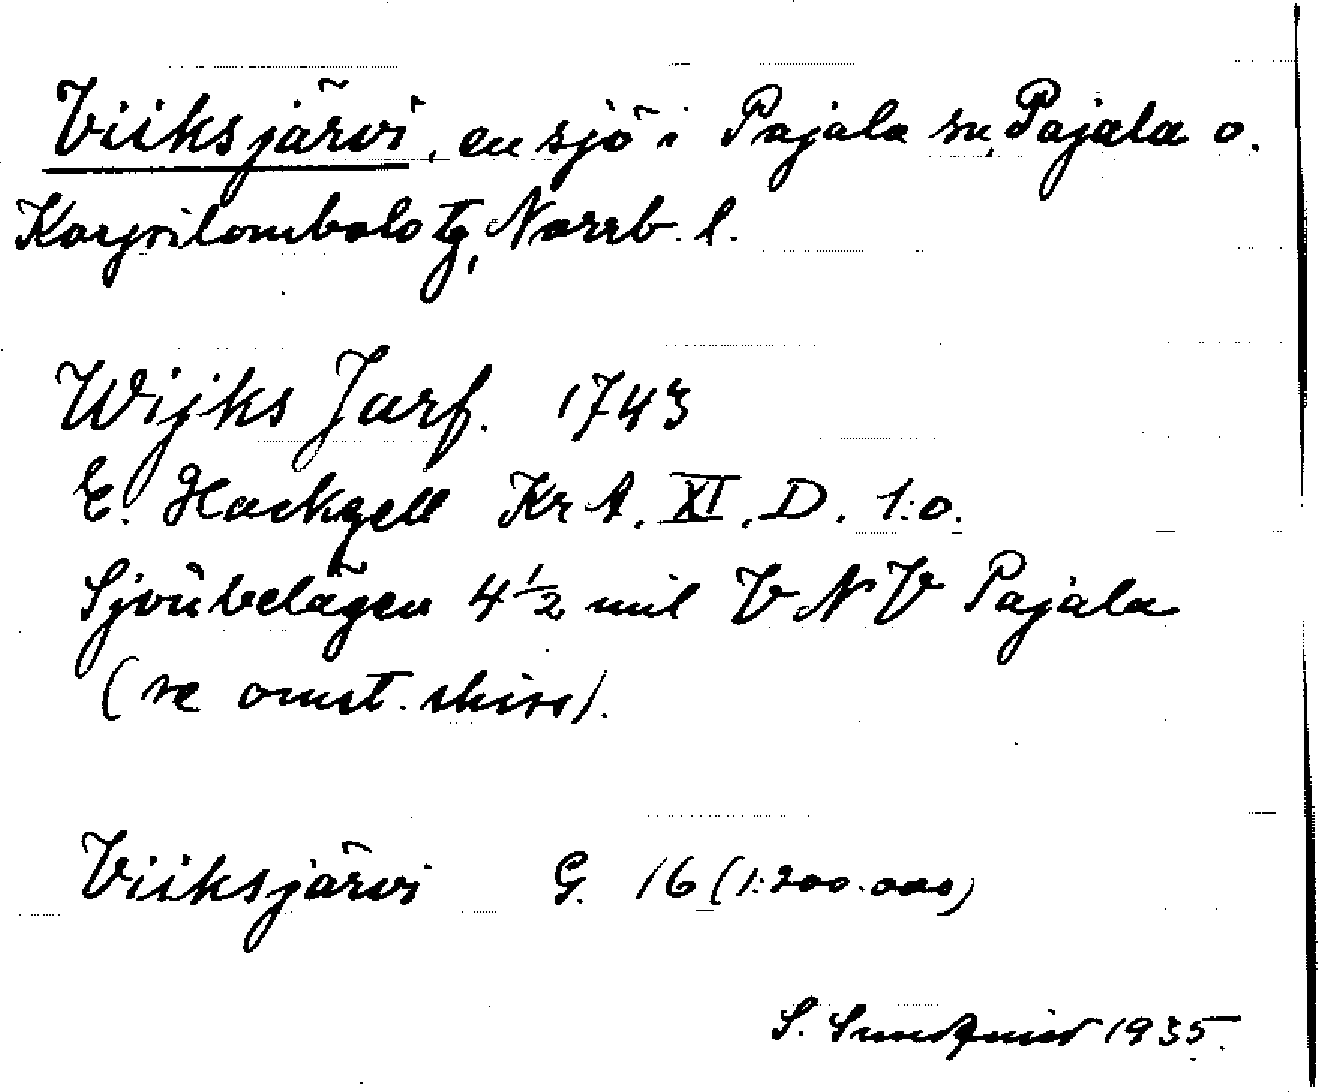 Viiksjärvi, en sjö i Pajala sn, Pajala o.
Korpilombolo tg, Norrb. l.
Wijks Jarf. 1743
E. Hackzell Kr A. XI. D. 1:o.
Sjön belägen 4 1/2 mil V N V Pajala
(se omst. skiss).
Viiksjärvi G. 16 (1:200.000)
S. Sundqvist 1935.